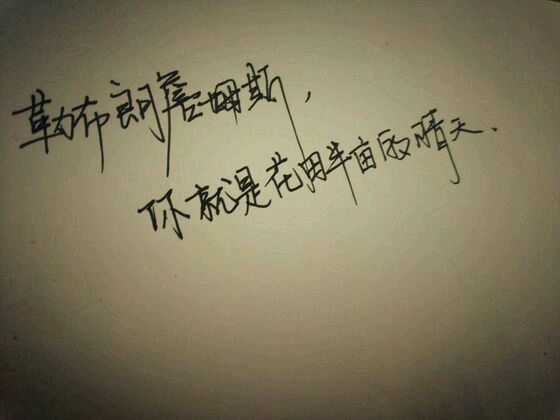 勒布朗詹姆斯,
你就是花田半亩的晴天.